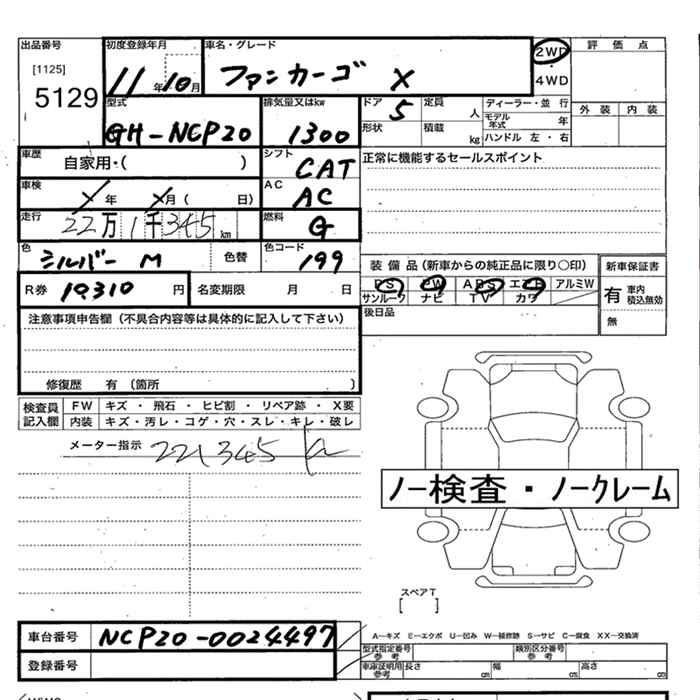 出品番号 初度登録年月 車名・グレード 2WD 評価点
[1125] 5129 11年 10月 ファンカーゴ X ・ 4WD
型式 排気量又はkw ドア 定員 ディーラー・並行 外装 内装
GH-NCP20 1300 5 人 モデル年式 年
形状 積載 kg ハンドル 左・右
車歴 自家用・( ) シフト CAT 正常に機能するセールスポイント
車検 年 月( 日) AC AC
走行 22万1千345km 燃料 G
色 シルバー M 色替 色コード 199 装備品(新車からの純正品に限り○印) 新車保証書
R券 10310円 名変期限 月 日 PS PW ABS アルミW 有 車内積込無効
サンルーフ ナビ TV カワ
注意事項申告欄(不具合内容等は具体的に記入して下さい) 後日品 無
修復歴 有 〔箇所 〕
検査員記入欄 FW キズ・飛石・ヒビ割・リペア跡・X要
内装 キズ・汚レ・コゲ・穴・スレ・キレ・破レ
メーター指示 221345
ノー検査・ノークレーム
スペアT
[ ]
車台番号 NCP20-0024497 A−キズ E−エクボ U−凹み W−補修跡 S−サビ C−腐食 XX−交換済
登録番号 型式指定番号参考 類別区分番号参考
車庫証明用参考 長さ cm 幅 cm 高さ cm